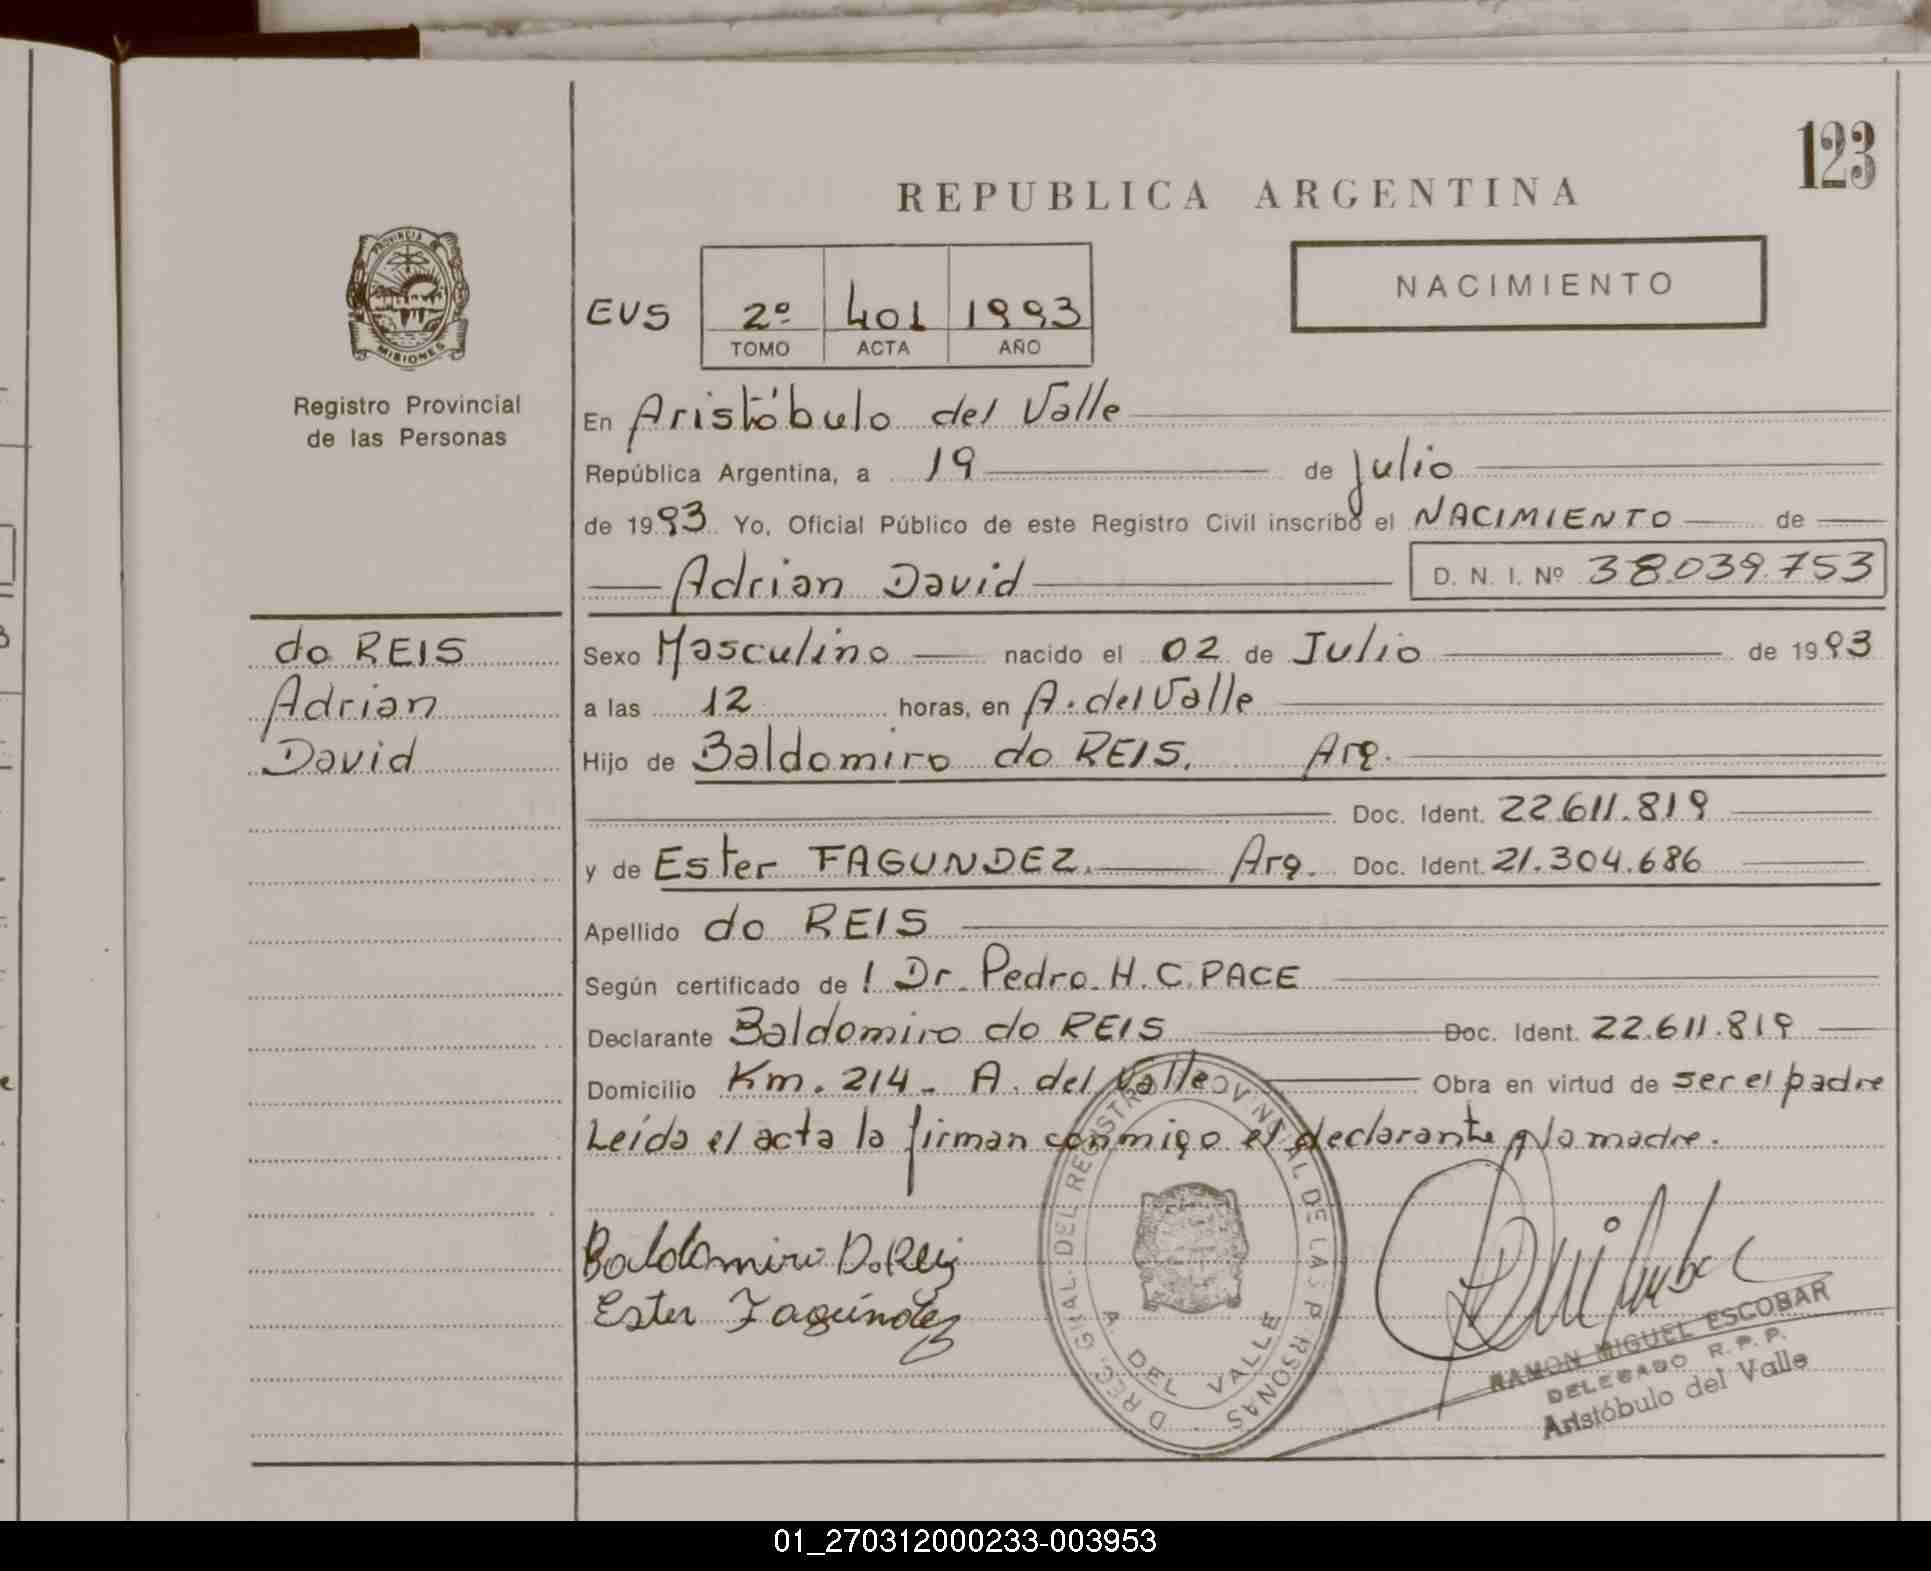 123
REPUBLICA ARGENTINA
PROVINCIA DE
MISIONES
Registro Provincial
de las Personas
NACIMIENTO
EVS 2º 401 1993
TOMO ACTA AÑO
En Aristóbulo del Valle
República Argentina, a 19 de Julio
de 1993 Yo, Oficial Público de este Registro Civil inscribo el NACIMIENTO de
Adrian David D. N. I. Nº 38.039.753
do REIS
Adrian
David
Sexo Masculino nacido el 02 de Julio de 1993
a las 12 horas, en A. del Valle
Hijo de Baldomiro do REIS. Arg.
Doc. Ident. 22.611.819
y de Ester FAGUNDEZ. Arg. Doc. Ident. 21.304.686
Apellido do REIS
Según certificado de l Dr. Pedro. H. C. PACE
Declarante Baldomiro do REIS Doc. Ident. 22.611.819
Domicilio Km. 214 - A. del Valle Obra en virtud de ser el padre
Leída el acta la firman conmigo el declarante y la madre.
Baldomiro Do Reis
Ester Fagundez
DIREC. GRAL. DEL REGISTRO PROVINCIAL DE LAS PERSONAS
A. DEL VALLE
RAMON MIGUEL ESCOBAR
DELEGADO R. P. P.
Aristóbulo del Valle
01_270312000233-003953